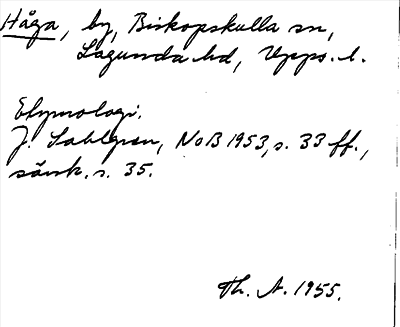 Håga, by, Biskopskulla sn,
Lagunda hd, Upps. l.
Etymologi.
J. Sahlgren, NoB 1953, s. 33 ff.,
särsk. s. 35.
Th. A. 1955.